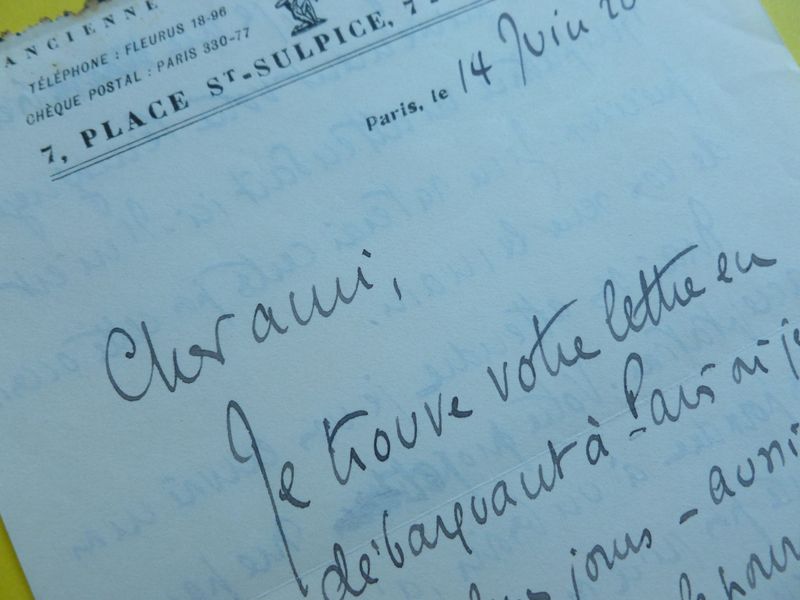 ANCIENNE
TÉLÉPHONE : FLEURUS 18-96
CHÈQUE POSTAL : PARIS 330-77
7, PLACE ST-SULPICE, 7
Paris, le 14 Juin 20
Cher ami,
Je trouve votre lettre en
débarquant à Paris où je
jours - aussi
pour